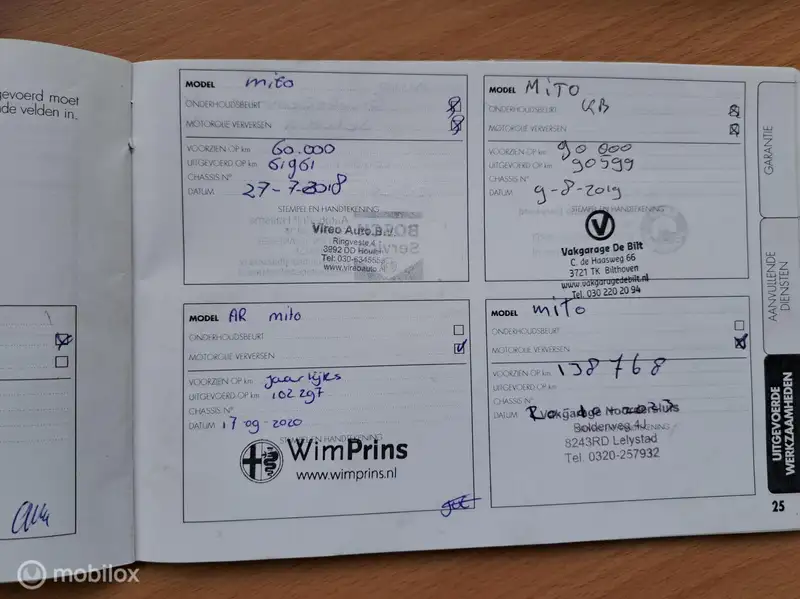 gevoerd moet
de velden in.
MODEL mito
ONDERHOUDSBEURT
MOTOROLIE VERVERSEN
VOORZIEN OP km 60.000
UITGEVOERD OP km 61961
CHASSIS N°
DATUM 27-7-2018
STEMPEL EN HANDTEKENING
Vireo Auto B.V.
Ringveste 4
3992 DD Houten
Tel: 030-6345655
www.vireoauto.nl
MODEL MiTO
ONDERHOUDSBEURT KB
MOTOROLIE VERVERSEN
VOORZIEN OP km 90 000
UITGEVOERD OP km 90599
CHASSIS N°
DATUM 9-8-2019
STEMPEL EN HANDTEKENING
Vakgarage De Bilt
C. de Haasweg 66
3721 TK Bilthoven
www.vakgaragedebilt.nl
Tel. 030 220 20 94
MODEL AR mito
ONDERHOUDSBEURT
MOTOROLIE VERVERSEN
VOORZIEN OP km jaarlijks
UITGEVOERD OP km 102.297
CHASSIS N°
DATUM 17 09-2020
STEMPEL EN HANDTEKENING
WimPrins
www.wimprins.nl
MODEL mito
ONDERHOUDSBEURT
MOTOROLIE VERVERSEN
VOORZIEN OP km 138768
UITGEVOERD OP km
CHASSIS N°
DATUM
Vakgarage Noordersluis
Bolderweg 4J
8243RD Lelystad
Tel. 0320-257932
GARANTIE
AANVULLENDE
DIENSTEN
UITGEVOERDE
WERKZAAMHEDEN
25
mobilox